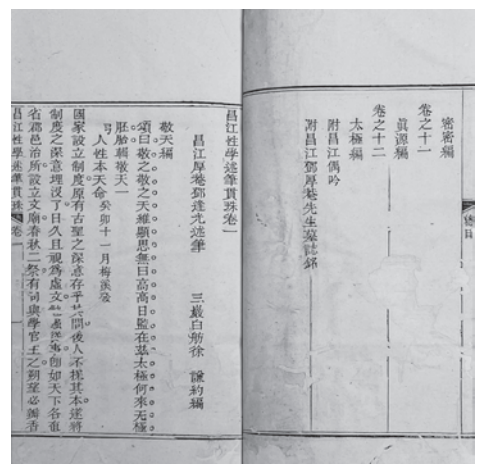 密密編
卷之十一
眞源編
卷之十二
太極編
附昌江偶吟
附昌江鄧厚菴先生墓誌銘
總目
昌江性學述筆貫珠卷一
昌江厚菴鄧逢光述筆 三巖白舫徐 謙約編
敬天編
頌曰敬之敬之天維顯思無曰高高日監在茲太極何來無極
胚胎輯敬天一
人性本天命 癸卯十一月梅溪
國家設立制度原有古聖之深意存乎其間後人不探其本遂將
制度之深意埋沒了日久且視爲虛文 卽如天下各直
省郡邑治所設立文廟春秋二祭有司與學官主之朔望必焚香
昌江性學述筆貫珠 卷一